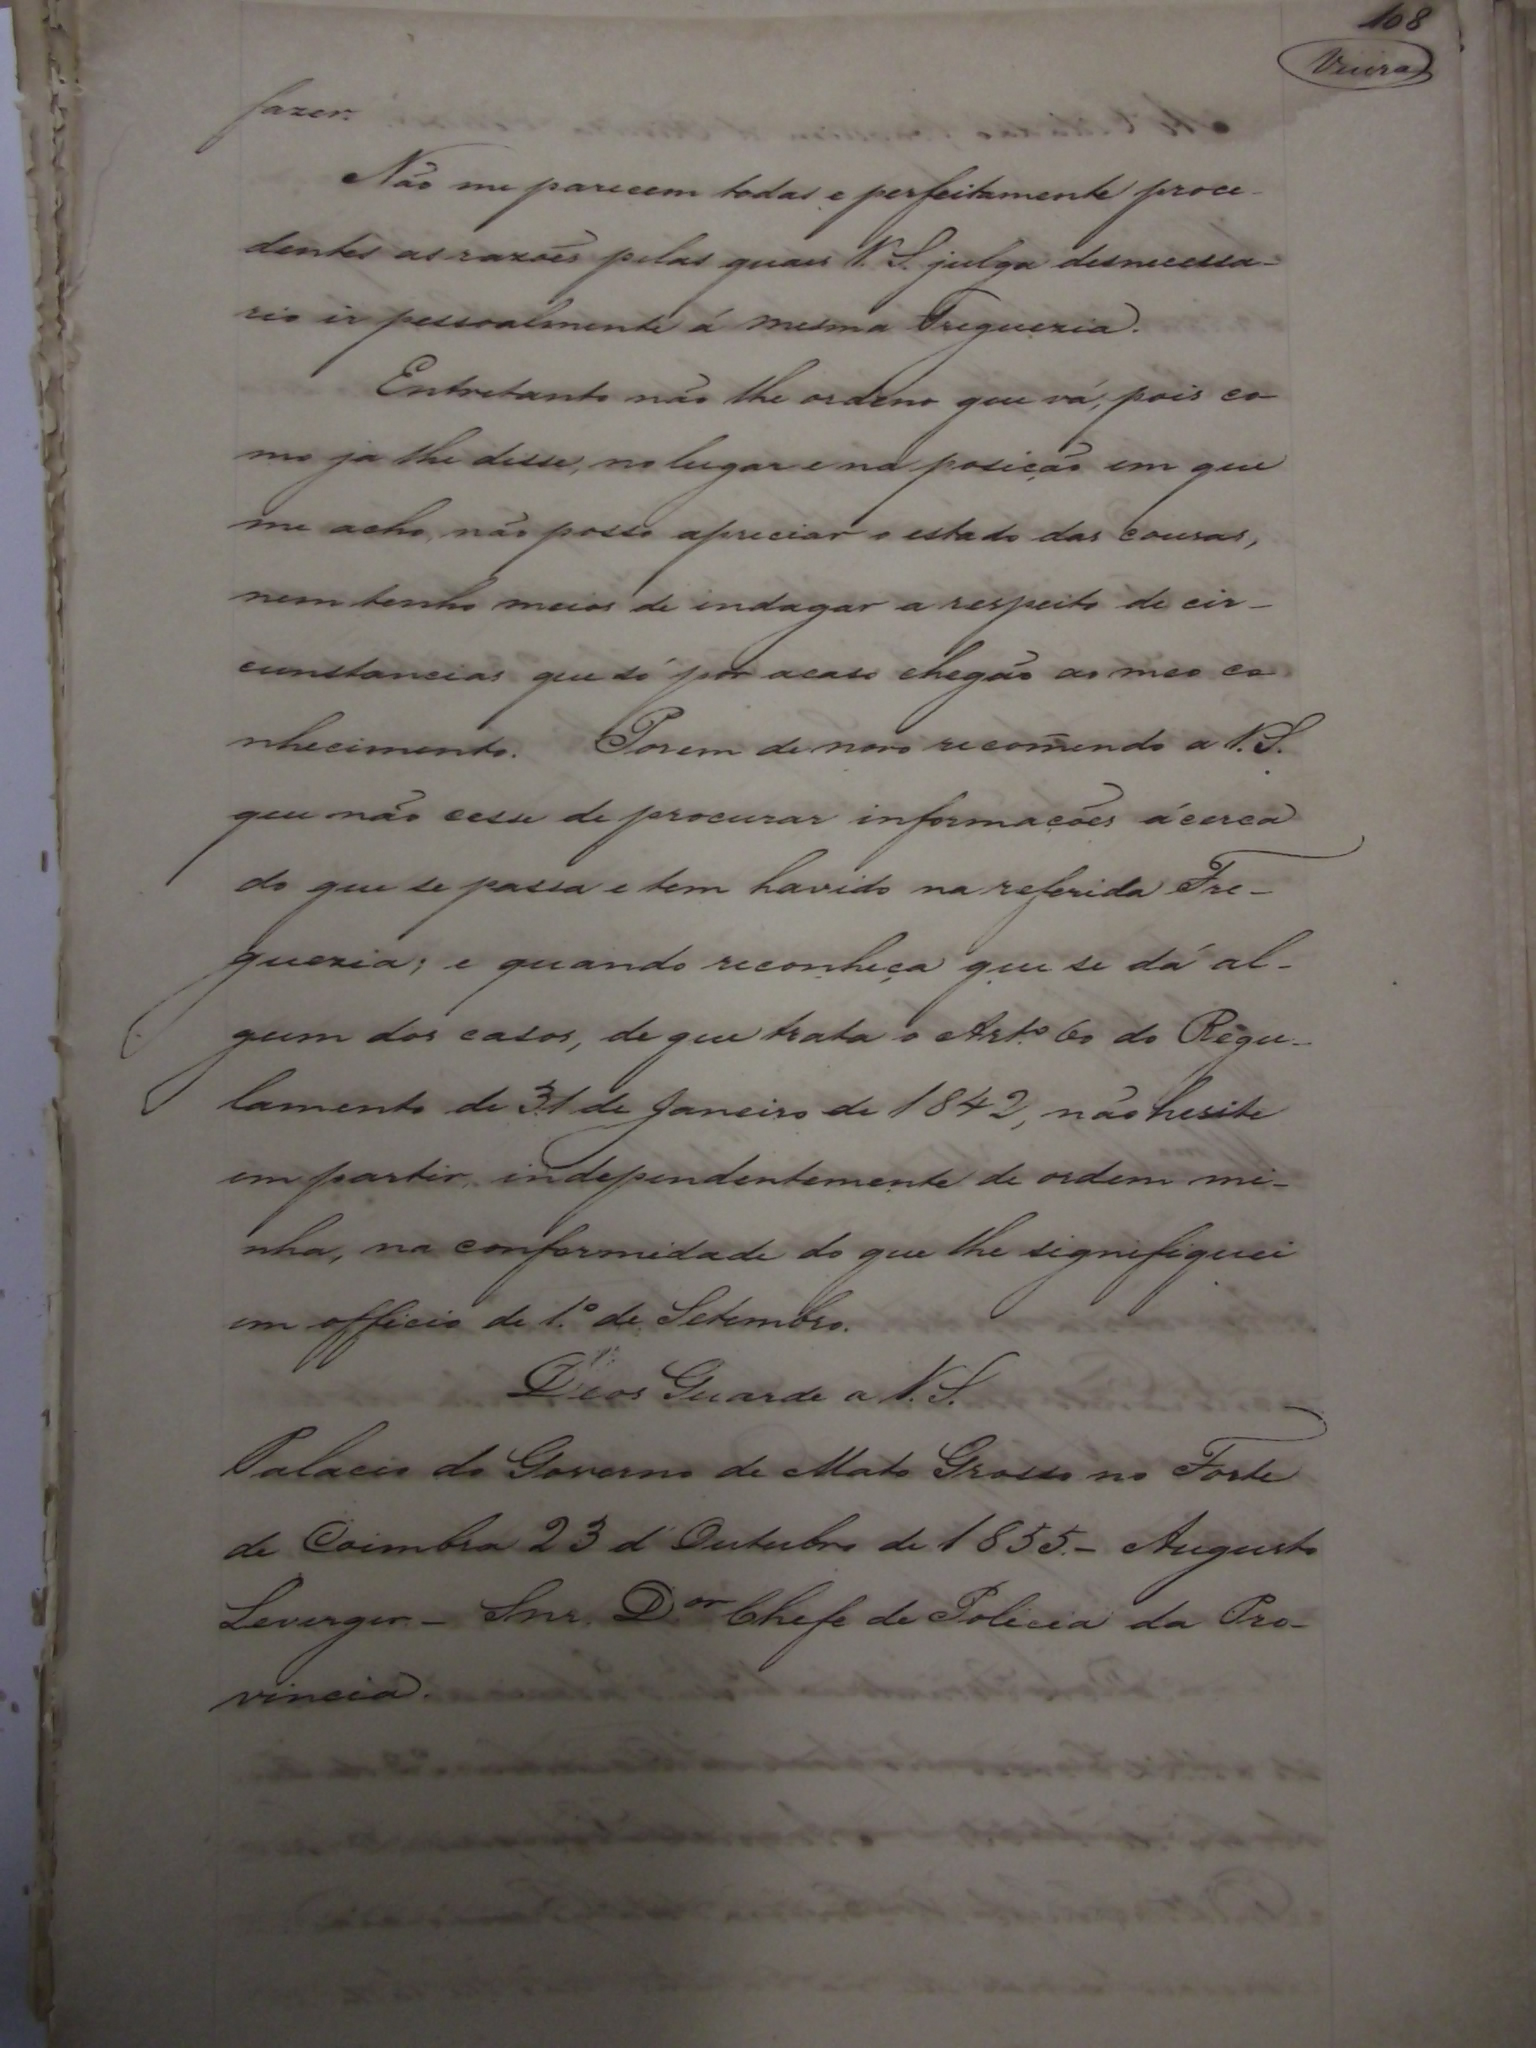 108
Vieira
fazer.
Não me parecem todas e perfeitamente proce-
dentes as razões pelas quaes V. S. julga desnecessa-
rio ir pessoalmente á mesma Freguezia.
Entretanto não lhe ordeno que vá, pois co
mo ja lhe disse, no lugar e na posição em que
me acho, não posso apreciar o estado das cousas,
nem tenho meios de indagar a respeito de cir-
cunstancias que só por acaso chegão ao meo co
nhecimento. Porem de novo recom̃endo a V. S.
que não cesse de procurar informações ácerca
do que se passa e tem havido na referida Fre-
guezia; e quando reconheça que se dá al-
gum dos casos, de que trata o Art.º 60 do Regu-
lamento de 31 de Janeiro de 1842, não hesite
em partir, independentemente de ordem mi-
nha, na conformidade do que lhe signifiquei
em officio de 1.º de Setembro.
Deos Guarde a V. S.
Palacio do Governo de Mato Grosso no Forte
de Coimbra 23 d'Outubro de 1855.- Augusto
Leverger - Snr. Dor Chefe de Policia da Pro-
vincia.